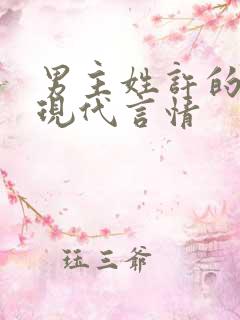 男主姓許的
現代言情
珏三爺